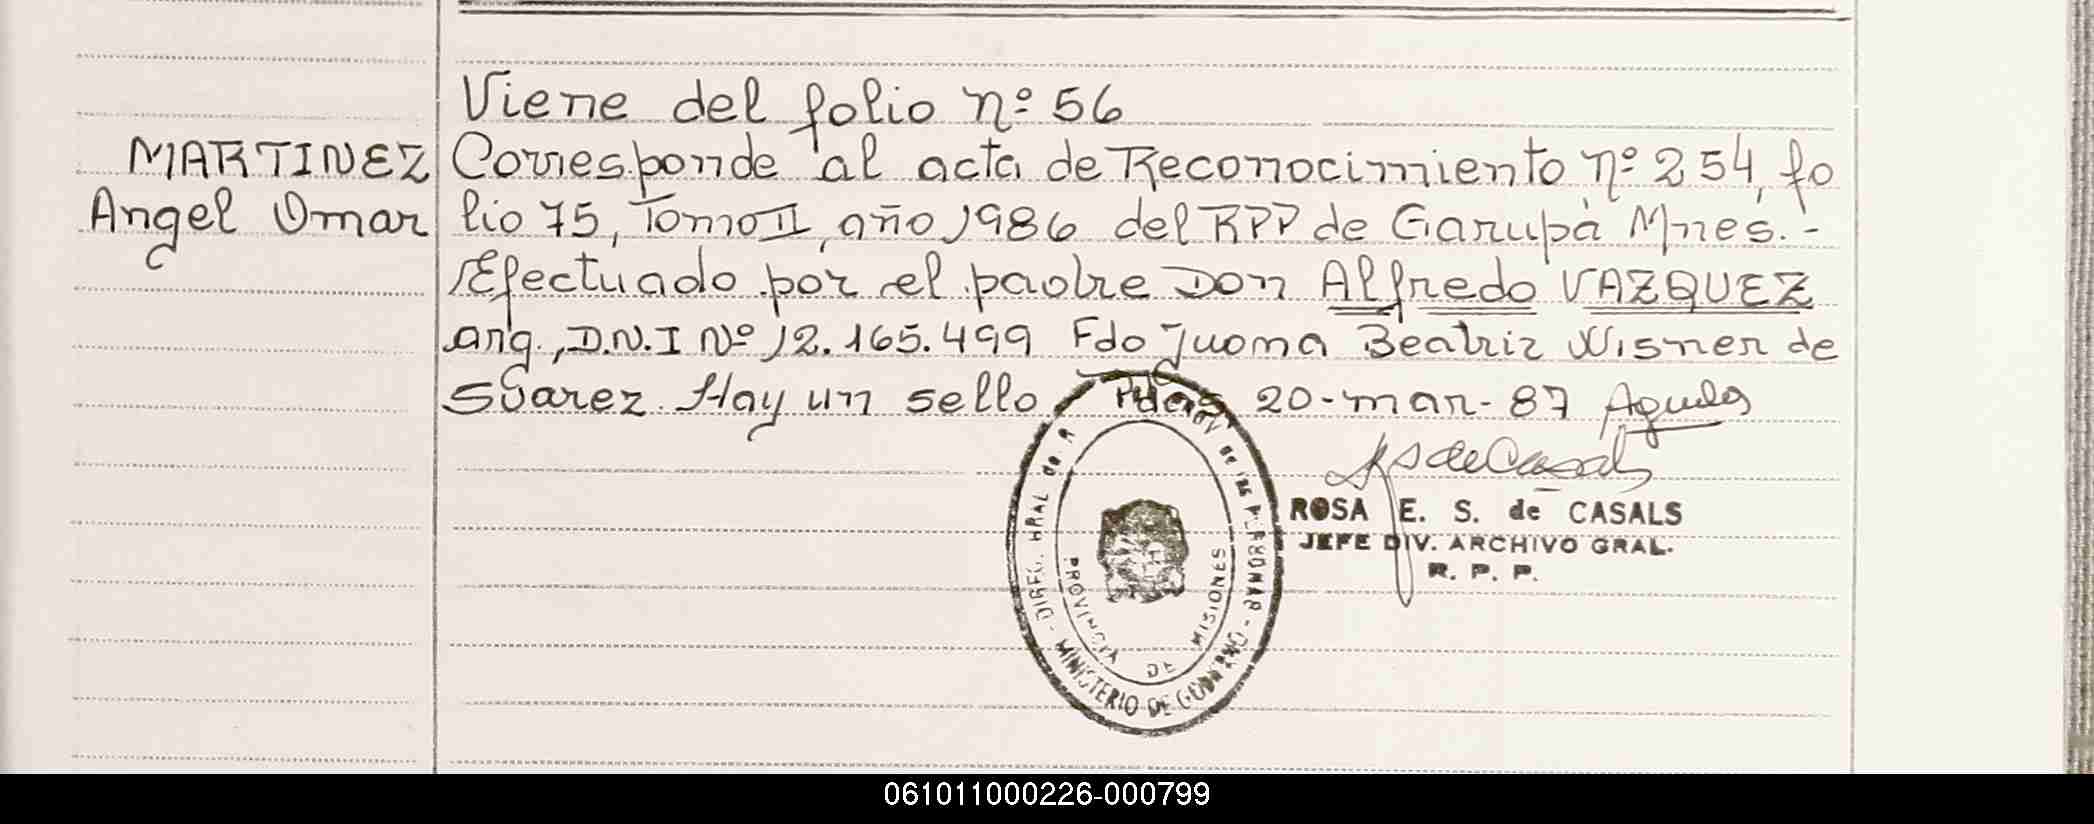 Viene del folio nº 56
MARTINEZ
Angel Omar
Corresponde al acta de Reconocimiento nº 254, fo
lio 75, Tomo II, año 1986 del RPP de Garupá Mnes.-
Efectuado por el padre Don Alfredo VAZQUEZ
arg., D.N.I Nº 12.165.499 Fdo Juana Beatriz Wisner de
Suarez. Hay un sello Pdas 20-mar-87
ROSA E. S. de CASALS
JEFE DIV. ARCHIVO GRAL.
R. P. P.
MINISTERIO DE GOBIERNO
PROVINCIA DE MISIONES
061011000226-000799